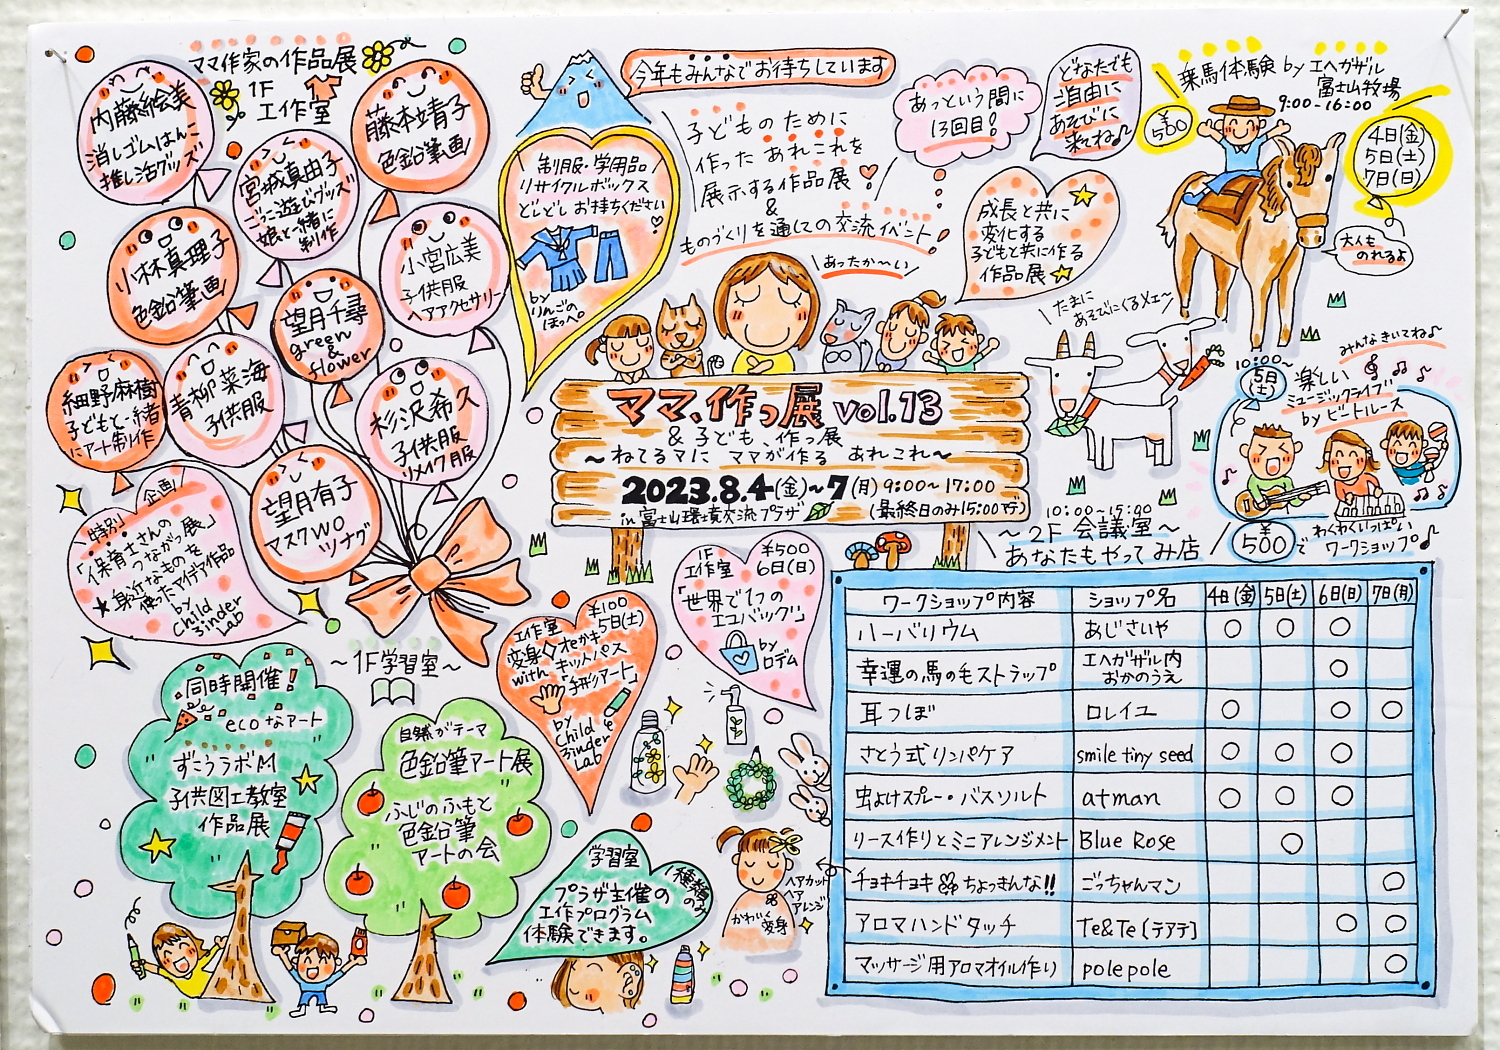 ママ作家の作品展
1F
工作室
内藤絵美
消しゴムはんこ
推し活グッズ
藤本靖子
色鉛筆画
宮城真由子
ごっこ遊びグッズ
娘と一緒に
制作
小林真理子
色鉛筆画
小宮広美
子供服
ヘアアクセサリー
望月千尋
green
&
flower
細野麻樹
子どもと一緒
にアート制作
青柳菜海
子供服
杉沢希久
子供服
リメイク服
望月有子
マスクwo
ツナグ
特別
企画!
「保育士さんの
つながっ展」
★身近なものを
使ったアイデア作品
by
Child
3inder
Lab
今年もみんなでお待ちしています
制服・学用品
リサイクルボックス
どしどしお持ちください♡
by
りんごの
ほっぺ。
子どものために
作った あれこれを
展示する作品展
&
ものづくりを通しての交流イベント
あっという間に
13回目!
どなたでも
自由に
あそびに
来てね♪
成長と共に
変化する
子どもと共に作る
作品展
あったか〜い
乗馬体験 by エヘガザル
富士山牧場
9:00~16:00
¥500
4日(金)
5日(土)
7日(日)
大人も
のれるよ
たまに
あそびにくるメェ〜
みんなきいてね♪
10:00~
5日(土)
楽しい
ミュージックライブ
by ビートルース
ママ、作っ展 vol.13
&子ども、作っ展
~ねてるマに ママが作る あれこれ~
2023.8.4(金)~7(月) 9:00~17:00
in 富士山環境交流プラザ (最終日のみ15:00まで)
10:00~15:00
~2F 会議室~
あなたもやってみ店
¥500で わくわくいっぱい
ワークショップ♪
ワークショップ内容 ショップ名 4日(金) 5日(土) 6日(日) 7日(月)
ハーバリウム あじさいや ○ ○ ○
幸運の馬の毛ストラップ エヘガザル内 おかのうえ ○
耳つぼ ロレイユ ○ ○ ○
さとう式リンパケア smile tiny seed ○ ○ ○
虫よけスプレー・バスソルト atman ○ ○ ○
リース作りとミニアレンジメント Blue Rose ○
チョキチョキ ちょっきんな!! ごっちゃんマン ○
アロマハンドタッチ Te&Te[テアテ] ○ ○
マッサージ用アロマオイル作り polepole ○
1F
工作室
¥500
6日(日)
「世界で1つの
エコバッグ」
by
ロデム
¥100
5日(土)
工作室
変身◇オセかキ
with キットパス
「手形アート」
by
Child
3inder
Lab
~1F学習室~
同時開催!
ecoなアート
ずこうラボM
子供図工教室
作品展
自然がテーマ
色鉛筆アート展
ふじのふもと
色鉛筆
アートの会
学習室
プラザ主催の
工作プログラム
体験できます。
1種類のみ
ヘアカット
ヘア
アレンジ
かわいく
変身